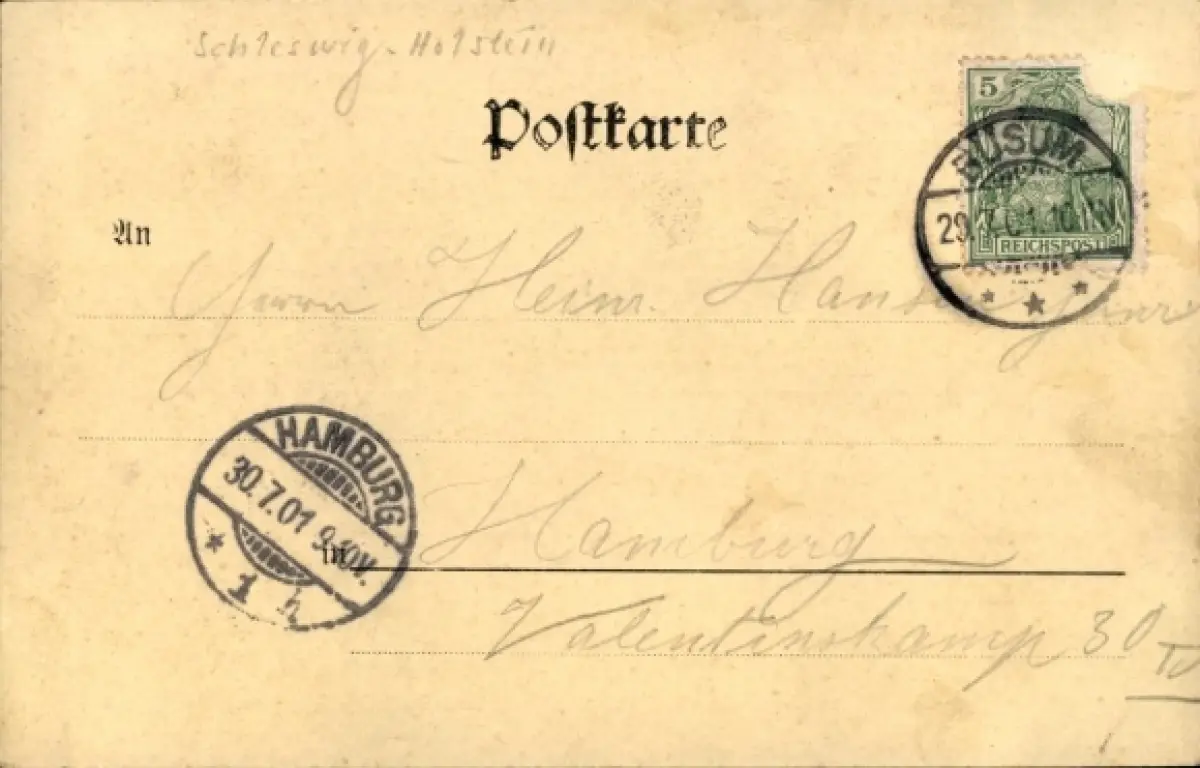 Schleswig-Holstein
Postkarte
5
BÜSUM
29.7.01.10-
REICHSPOST
An
Herrn Heinr. Hansen junr
HAMBURG
30.7.01 9-10V.
1 h
in Hamburg
Valentinskamp 30
IV